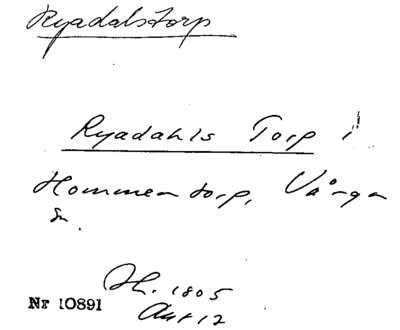 Ryadalstorp
Ryadahls Torp i
Hommentorp, Vånga
Sn.
Hl. 1805
Akt 12
Nr 10891